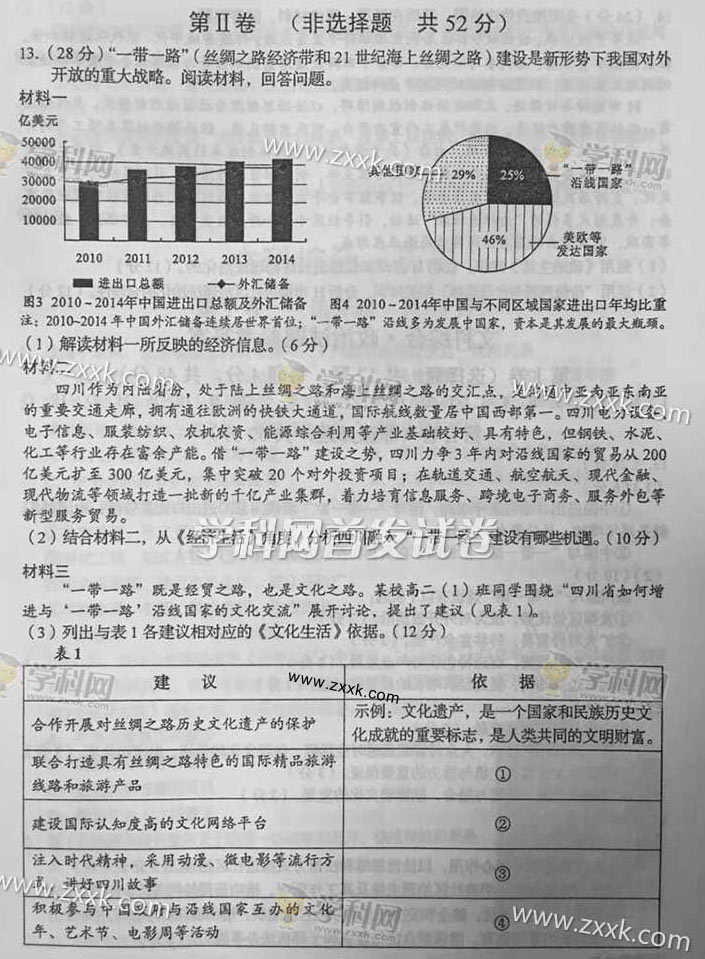 第Ⅱ卷 （非选择题 共52分）
13.（28分）“一带一路”（丝绸之路经济带和21世纪海上丝绸之路）建设是新形势下我国对外
开放的重大战略。阅读材料，回答问题。
材料一
亿美元
50000
40000
30000
20000
10000
2010 2011 2012 2013 2014
进出口总额 外汇储备
其他国家 29% 25% “一带一路”
沿线国家
46% 美欧等
发达国家
图3 2010~2014年中国进出口总额及外汇储备 图4 2010~2014年中国与不同区域国家进出口年均比重
注：2010~2014年中国外汇储备连续居世界首位；“一带一路”沿线多为发展中国家，资本是其发展的最大瓶颈。
（1）解读材料一所反映的经济信息。（6分）
材料二
四川作为内陆省份，处于陆上丝绸之路和海上丝绸之路的交汇点，是沟通中亚南亚东南亚
的重要交通走廊，拥有通往欧洲的快铁大通道，国际航线数量居中国西部第一。四川电力设备、
电子信息、服装纺织、农机农资、能源综合利用等产业基础较好、具有特色，但钢铁、水泥、
化工等行业存在富余产能。借“一带一路”建设之势，四川力争3年内对沿线国家的贸易从200
亿美元扩至300亿美元，集中突破20个对外投资项目；在轨道交通、航空航天、现代金融、
现代物流等领域打造一批新的千亿产业集群，着力培育信息服务、跨境电子商务、服务外包等
新型服务贸易。
（2）结合材料二，从《经济生活》角度，分析四川融入“一带一路”建设有哪些机遇。（10分）
材料三
“一带一路”既是经贸之路，也是文化之路。某校高二（1）班同学围绕“四川省如何增
进与‘一带一路’沿线国家的文化交流”展开讨论，提出了建议（见表1）。
（3）列出与表1各建议相对应的《文化生活》依据。（12分）
表1
建 议 依 据
合作开展对丝绸之路历史文化遗产的保护
示例：文化遗产，是一个国家和民族历史文
化成就的重要标志，是人类共同的文明财富。
联合打造具有丝绸之路特色的国际精品旅游
线路和旅游产品
①
建设国际认知度高的文化网络平台
②
注入时代精神，采用动漫、微电影等流行方
式，讲好四川故事
③
积极参与中国政府与沿线国家互办的文化
年、艺术节、电影周等活动
④
学科网
www.zxxk.com
学科网首发试卷